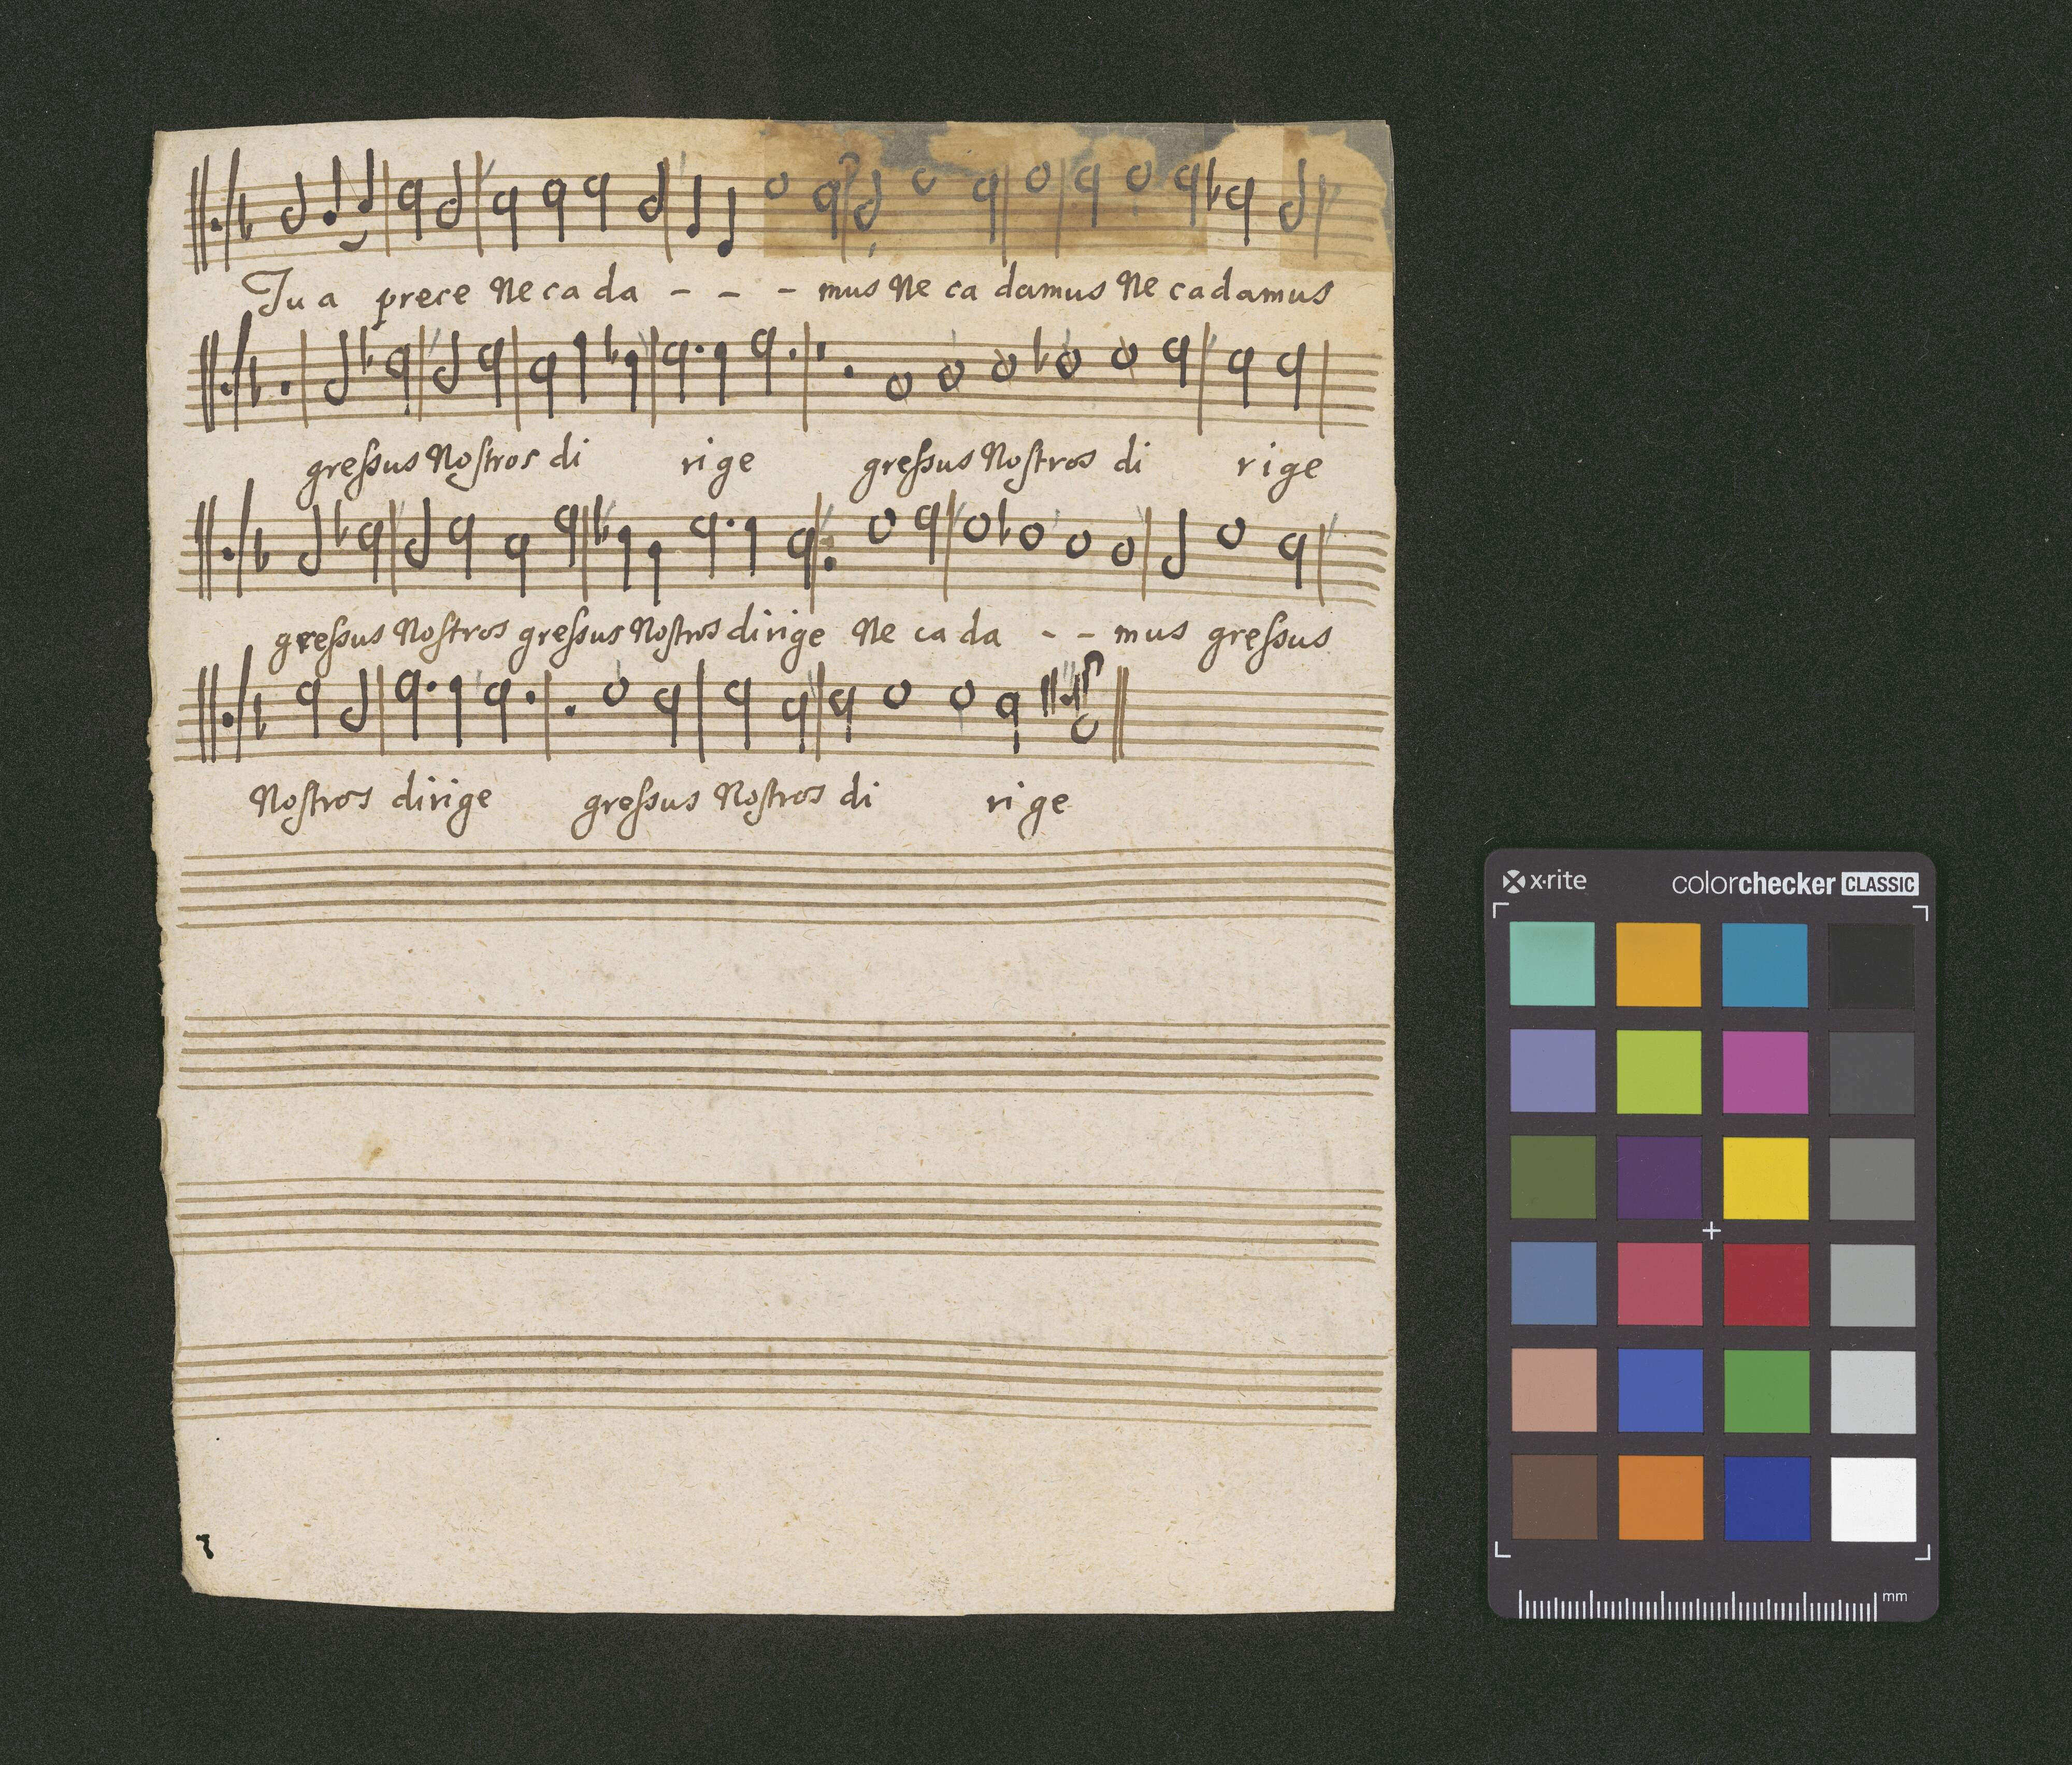 Tua prece Ne ca da - - - mus Ne ca damus Ne cadamus
greſsus Noſtros di rige greſsus Noſtros di rige
greſsus Noſtros greſsus Noſtros dirige Ne ca da - - mus greſsus
Noſtros dirige greſsus Noſtros di rige
x·rite colorchecker CLASSIC
mm